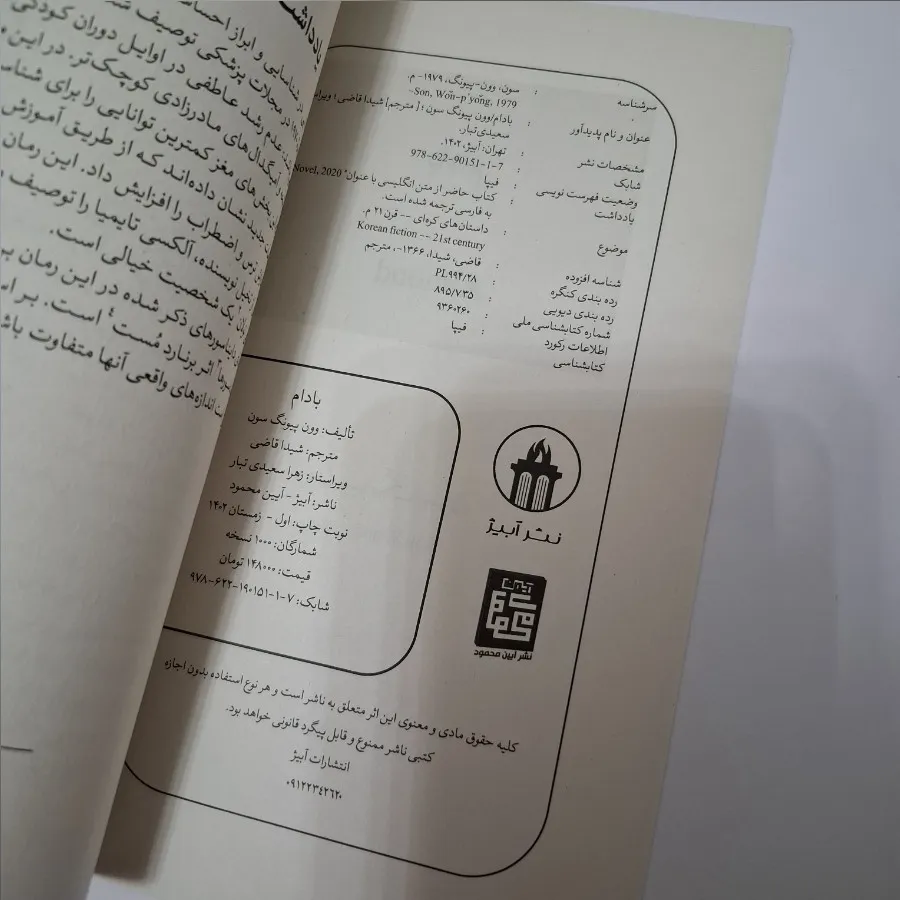 یادداشت
شناسایی و ابراز احساسا
در مجلات پزشکی توصیف شد
عدم رشد عاطفی در اوایل دوران کودکی
آمیگدال‌های مادرزادی کوچک‌تر. در این
بخش‌های مغز کمترین توانایی را برای شناس
جدید نشان داده‌اند که از طریق آموزش
ترس و اضطراب را افزایش داد. این رمان
تخیل نویسنده، آلکسی تایمیا را توصیف
یک شخصیت خیالی است.
دایناسورهای ذکر شده در این رمان بر
اثر برنارد مُست۴ است. بر اس
اندازه‌های واقعی آنها متفاوت باش
سرشناسه : سون، وون-پیونگ، ۱۹۷۹- م.
Son, Wŏn-p'yŏng, 1979-
عنوان و نام پدیدآور : بادام/وون پیونگ سون ؛ [مترجم] شیدا قاضی ؛ ویراس
سعیدی تبار.
مشخصات نشر : تهران: آبیژ، ۱۴۰۲.
شابک : 978-622-90151-1-7
وضعیت فهرست نویسی : فیپا
یادداشت : کتاب حاضر از متن انگلیسی با عنوان" Novel, 2020
به فارسی ترجمه شده است.
موضوع : داستان‌های کره‌ای -- قرن ۲۱ م.
Korean fiction -- 21st century
شناسه افزوده : قاضی، شیدا، ۱۳۶۶-، مترجم
رده بندی کنگره : PL۹۹۴/۲۸
رده بندی دیویی : ۸۹۵/۷۳۵
شماره کتابشناسی ملی : ۹۳۶۰۲۶۰
اطلاعات رکورد : فیپا
کتابشناسی
بادام
تألیف: وون پیونگ سون
مترجم: شیدا قاضی
ویراستار: زهرا سعیدی تبار
ناشر: آبیژ - آیین محمود
نوبت چاپ: اول - زمستان ۱۴۰۲
شمارگان: ۱۰۰۰ نسخه
قیمت: ۱۴۸۰۰۰ تومان
شابک: ۷-۱-۹۰۱۵۱-۶۲۲-۹۷۸
نشر آبیژ
نشر آیین محمود
کلیه حقوق مادی و معنوی این اثر متعلق به ناشر است و هر نوع استفاده بدون اجازه
کتبی ناشر ممنوع و قابل پیگرد قانونی خواهد بود.
انتشارات آبیژ
۰۹۱۲۲۳۴۲۶۲۰